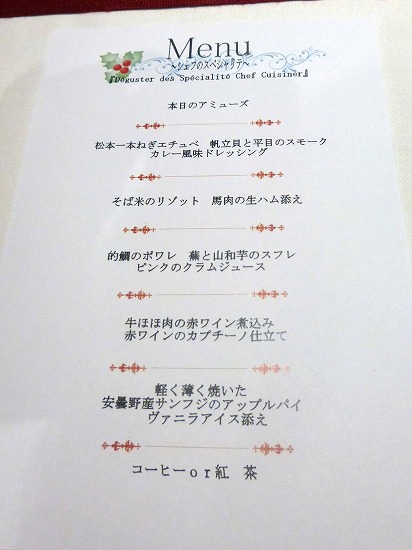 Menu
～シェフのスペシャリテ～
『Déguster des Spécialité Chef Cuisiner』
本日のアミューズ
松本一本ねぎエチュベ　帆立貝と平目のスモーク
カレー風味ドレッシング
そば米のリゾット　馬肉の生ハム添え
的鯛のポワレ　蕪と山和芋のスフレ
ピンクのクラムジュース
牛ほほ肉の赤ワイン煮込み
赤ワインのカプチーノ仕立て
軽く薄く焼いた
安曇野産サンフジのアップルパイ
ヴァニラアイス添え
コーヒーｏｒ紅　茶